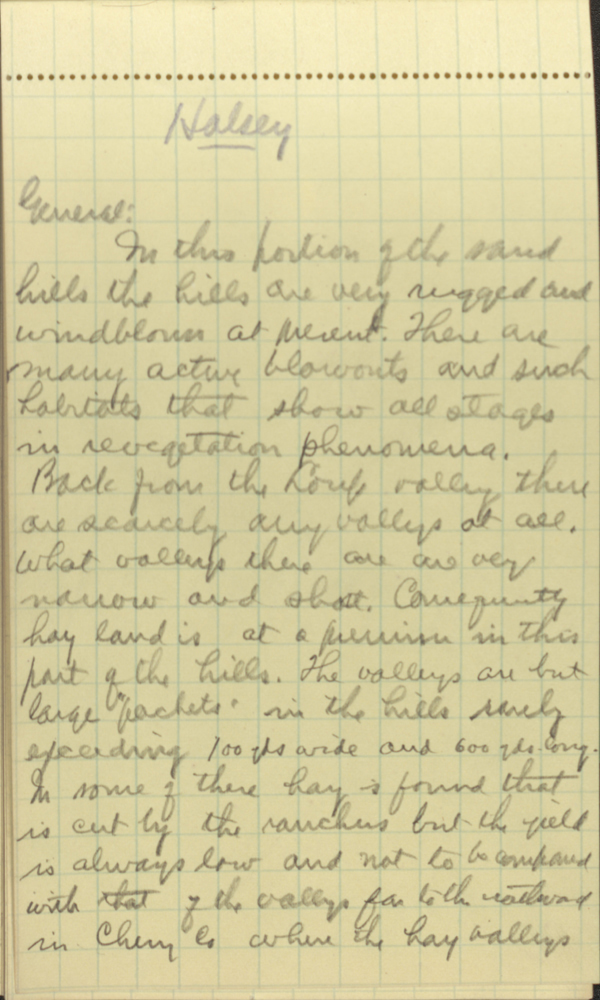 Halsey
General:
In this portion of the sand
hills the hills are very rugged and
windblown at present. There are
many active blowouts and such
habitats that show all stages
in revegetation phenomena.
Back from the Loup valley there
are scarcely any valleys at all.
What valleys there are are very
narrow and short. Consequently
hay land is at a premium in this
part of the hills. The valleys are but
large "pockets" in the hills rarely
exceeding 100 yds wide and 600 yds long.
In some of these hay is found that
is cut by the ranchers but the yield
is always low and not to be compared
with that of the valleys far to the northward
in Cherry Co where the hay valleys